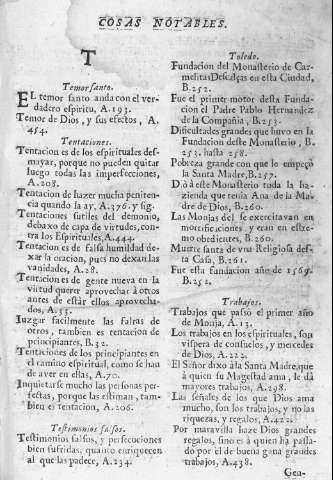 COSAS NOTABLES.
T
Temor santo.
EL temor santo anda con el ver-
dadero espiritu, A.193.
Temor de Dios, y sus efectos, A.
454.
Tentaciones.
Tentacion es de los espirituales des-
mayar, porque no pueden quitar
luego todas las imperfecciones,
A.208.
Tentacion de hazer mucha peniten-
cia quando la ay, A.376. y sig.
Tentaciones sutiles del demonio,
debaxo de capa de virtudes, con-
tra los Espirituales, A.444.
Tentacion es de falsa humildad de-
xar la oracion, pues no dexan las
vanidades, A.28.
Tentacion es de gente nueva en la
virtud querer aprovechar à otros
antes de estàr ellos aprovecha-
dos, A.53.
Iuzgar facilmente las faltas de
otros, tambien es tentacion de
principiantes, B.32.
Tentaciones de los principiantes en
el camino espiritual, como se han
de aver en ellas, A.70.
Inquietarse mucho las personas per-
fectas, porque las estiman, tam-
bien es tentacion, A.206.
Testimonios falsos.
Testimonios falsos, y persecuciones
bien sufridas, quanto enriquecen
al que las padece, A.234.
Toledo.
Fundacion del Monasterio de Car-
melitas Descalças en esta Ciudad,
B.252.
Fue el primer motor desta Funda-
cion el Padre Pablo Hernandez
de la Compañia, B.253.
Dificultades grandes que huvo en la
Fundacion deste Monasterio, B.
253. hasta 258.
Pobreza grande con que lo empeçò
la Santa Madre, B.257.
Diò à este Monasterio toda la ha-
zienda que tenia Ana de la Ma-
dre de Dios, B.260.
Las Monjas del se exercitavan en
mortificaciones, y eran en estre-
mo obedientes, B.260.
Muere santa de una Religiosa des-
ta Casa, B.261.
Fue esta fundacion año de 1569.
B.252.
Trabajos.
Trabajos que passò el primer año
de Monja, A.13.
Los trabajos en los espirituales, son
vispera de consuelos, y mercedes
de Dios, A.222.
El Señor dixo à la Santa Madre, que
à quien su Magestad ama, le dà
mayores trabajos, A.298.
Las señales de los que Dios ama
mucho, son los trabajos, y no las
riquezas, y regalos, A.422.
Por maravilla haze Dios grandes
regalos, sino es à quien ha passa-
do por èl de buena gana grandes
trabajos, A.438.
Gen-